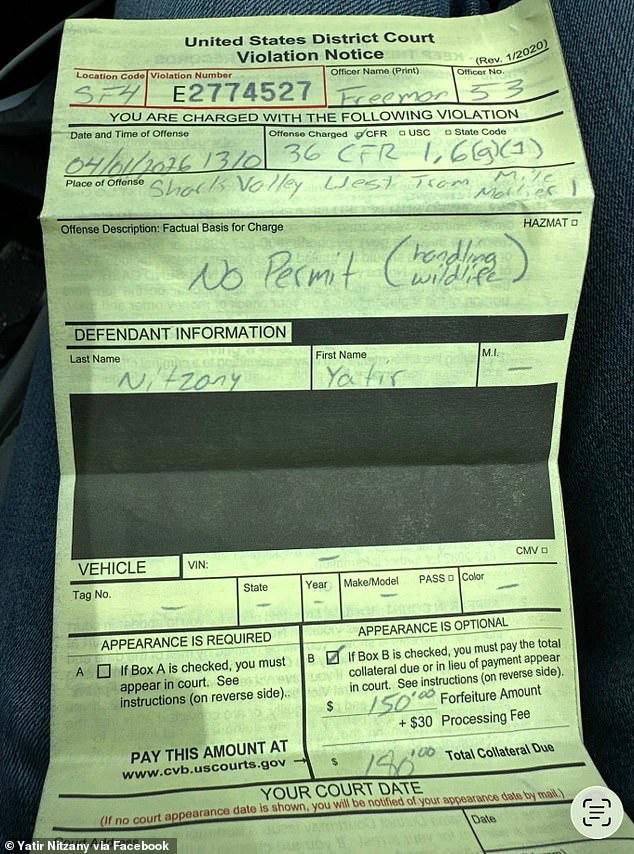 United States District Court
Violation Notice
(Rev. 1/2020)
Location Code Violation Number Officer Name (Print) Officer No.
SF4 E2774527 Freeman 53
YOU ARE CHARGED WITH THE FOLLOWING VIOLATION
Date and Time of Offense Offense Charged CFR USC State Code
04/01/2026 1310 36 CFR 1.6(g)(1)
Place of Offense Shark Valley West Tram Mile
Marker 1
Offense Description: Factual Basis for Charge HAZMAT
No Permit (handling
wildlife)
DEFENDANT INFORMATION
Last Name First Name M.I.
Nitzany Yatir —
VEHICLE VIN: — CMV
Tag No. State Year Make/Model PASS Color
— — — — —
APPEARANCE IS REQUIRED
A If Box A is checked, you must
appear in court. See
instructions (on reverse side).
APPEARANCE IS OPTIONAL
B If Box B is checked, you must pay the total
collateral due or in lieu of payment appear
in court. See instructions (on reverse side).
$ 150.00 Forfeiture Amount
+ $30 Processing Fee
PAY THIS AMOUNT AT
www.cvb.uscourts.gov → $ 180.00 Total Collateral Due
YOUR COURT DATE
(If no court appearance date is shown, you will be notified of your appearance date by mail.)
Court Address Date
© Yatir Nitzany via Facebook